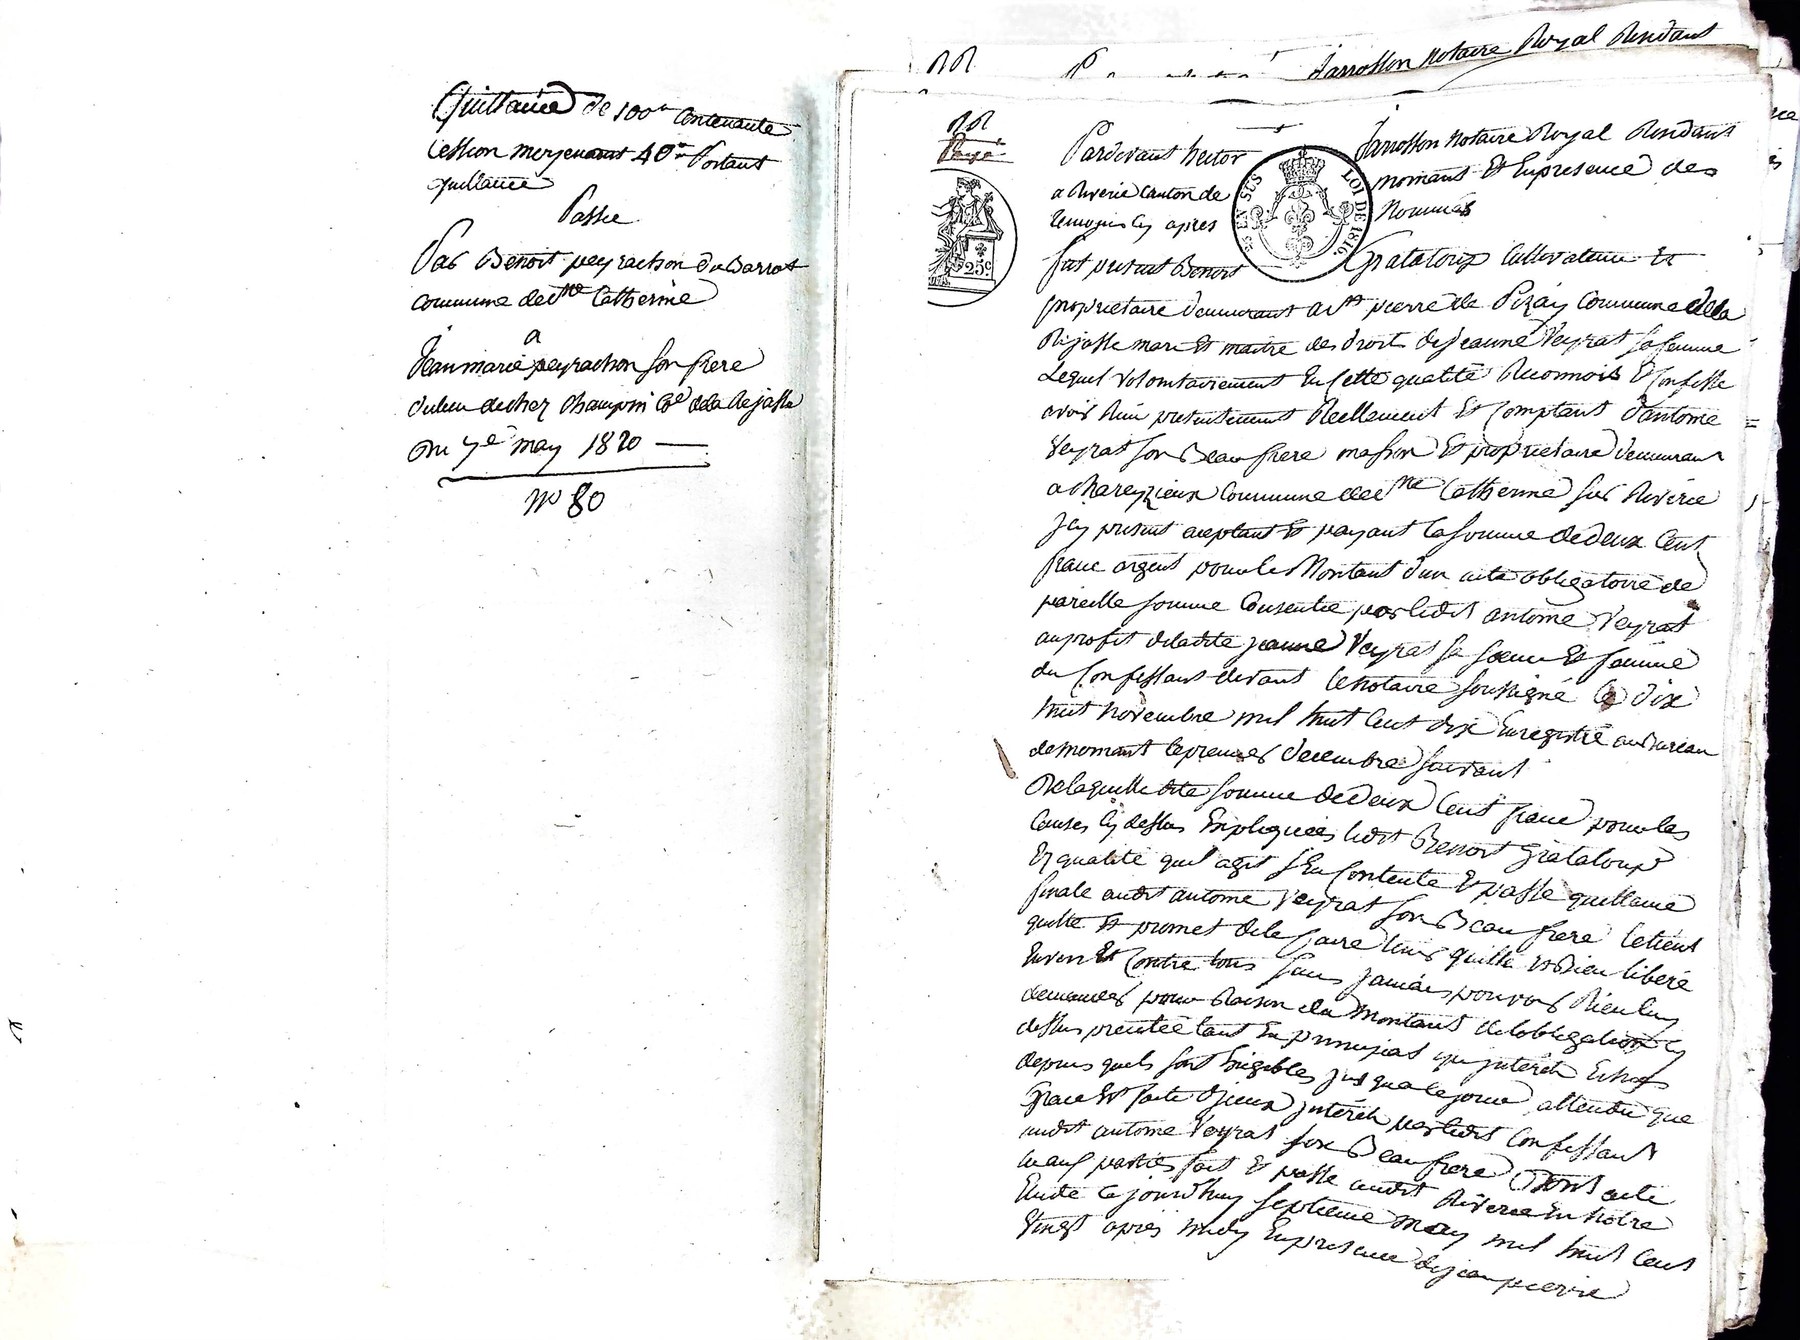 Quittance de 100 contenante
Cession moyenant 40 Portant
quittance
Passée
Par Benoit peyrachon du Barrot
commune de Ste Catherine
a
Jean marie peyrachon son frere
du lieu de chez Champin Cne de la Rejasse
Du 7e may 1820
No 80
Jarrosson Notaire Royal Residant
RR
RR
Payé
Pardevant hector Jarrosson Notaire Royal Residant
a Riverie Canton de mornant Et En presence des
temoins cy apres Nommés
EN SUS
LOI DE 1816
25c
fut present Benoit Grataloup Cultivateur Et
proprietaire demeurant a St pierre de Pizay Commune de la
Rejasse mari Et maitre des droits de jeanne Veyrat sa femme
Lequel volontairement En cette qualité Reconnois Et Confesse
avoir Reçu presentement Réellement Et Comptant d'antoine
Veyrat son Beau frere masson Et proprietaire demeurant
a chareyzieux Commune de Ste Catherine sur Riverie
jcy present aceptant Et payant la somme de deux Cent
franc argent pour le Montant d'un acte obligatoire de
pareille somme Consentie par ledit antoine Veyrat
au profit de ladite jeanne Veyrat sa sœur Et femme
du Confessant devant le Notaire soussigné le dix
huit Novembre mil huit Cent dix Enregistré au Bureau
de mornant le premier decembre suivant
De laquelle dite somme de deux Cent franc pour les
Causes Cy dessus Expliquées ledit Benoit Grataloup
En qualité quil agit s'En Contente Et passe quittance
finale audit antoine Veyrat son Beau frere le tient
quitte Et promet de le faire tenir quitte Et Bien liberé
Envers Et Contre tous sans jamais pouvoir Rien luy
demander pour Raison du Montant de l'obligation Cy
dessus precitée tant En principal qu'jnterêts Echus
depuis quels sont Exigibles jusqua ce jour, attendu que
Grace Est faite d'jceux jnterêts par ledit Confessant
audit antoine Veyrat son Beau frere Dont acte
aux parties fait Et passé audit Riverie En Notre
Etude Cejourd'huy septieme May mil huit Cent
Vingt apres midy En presence de jean pierre